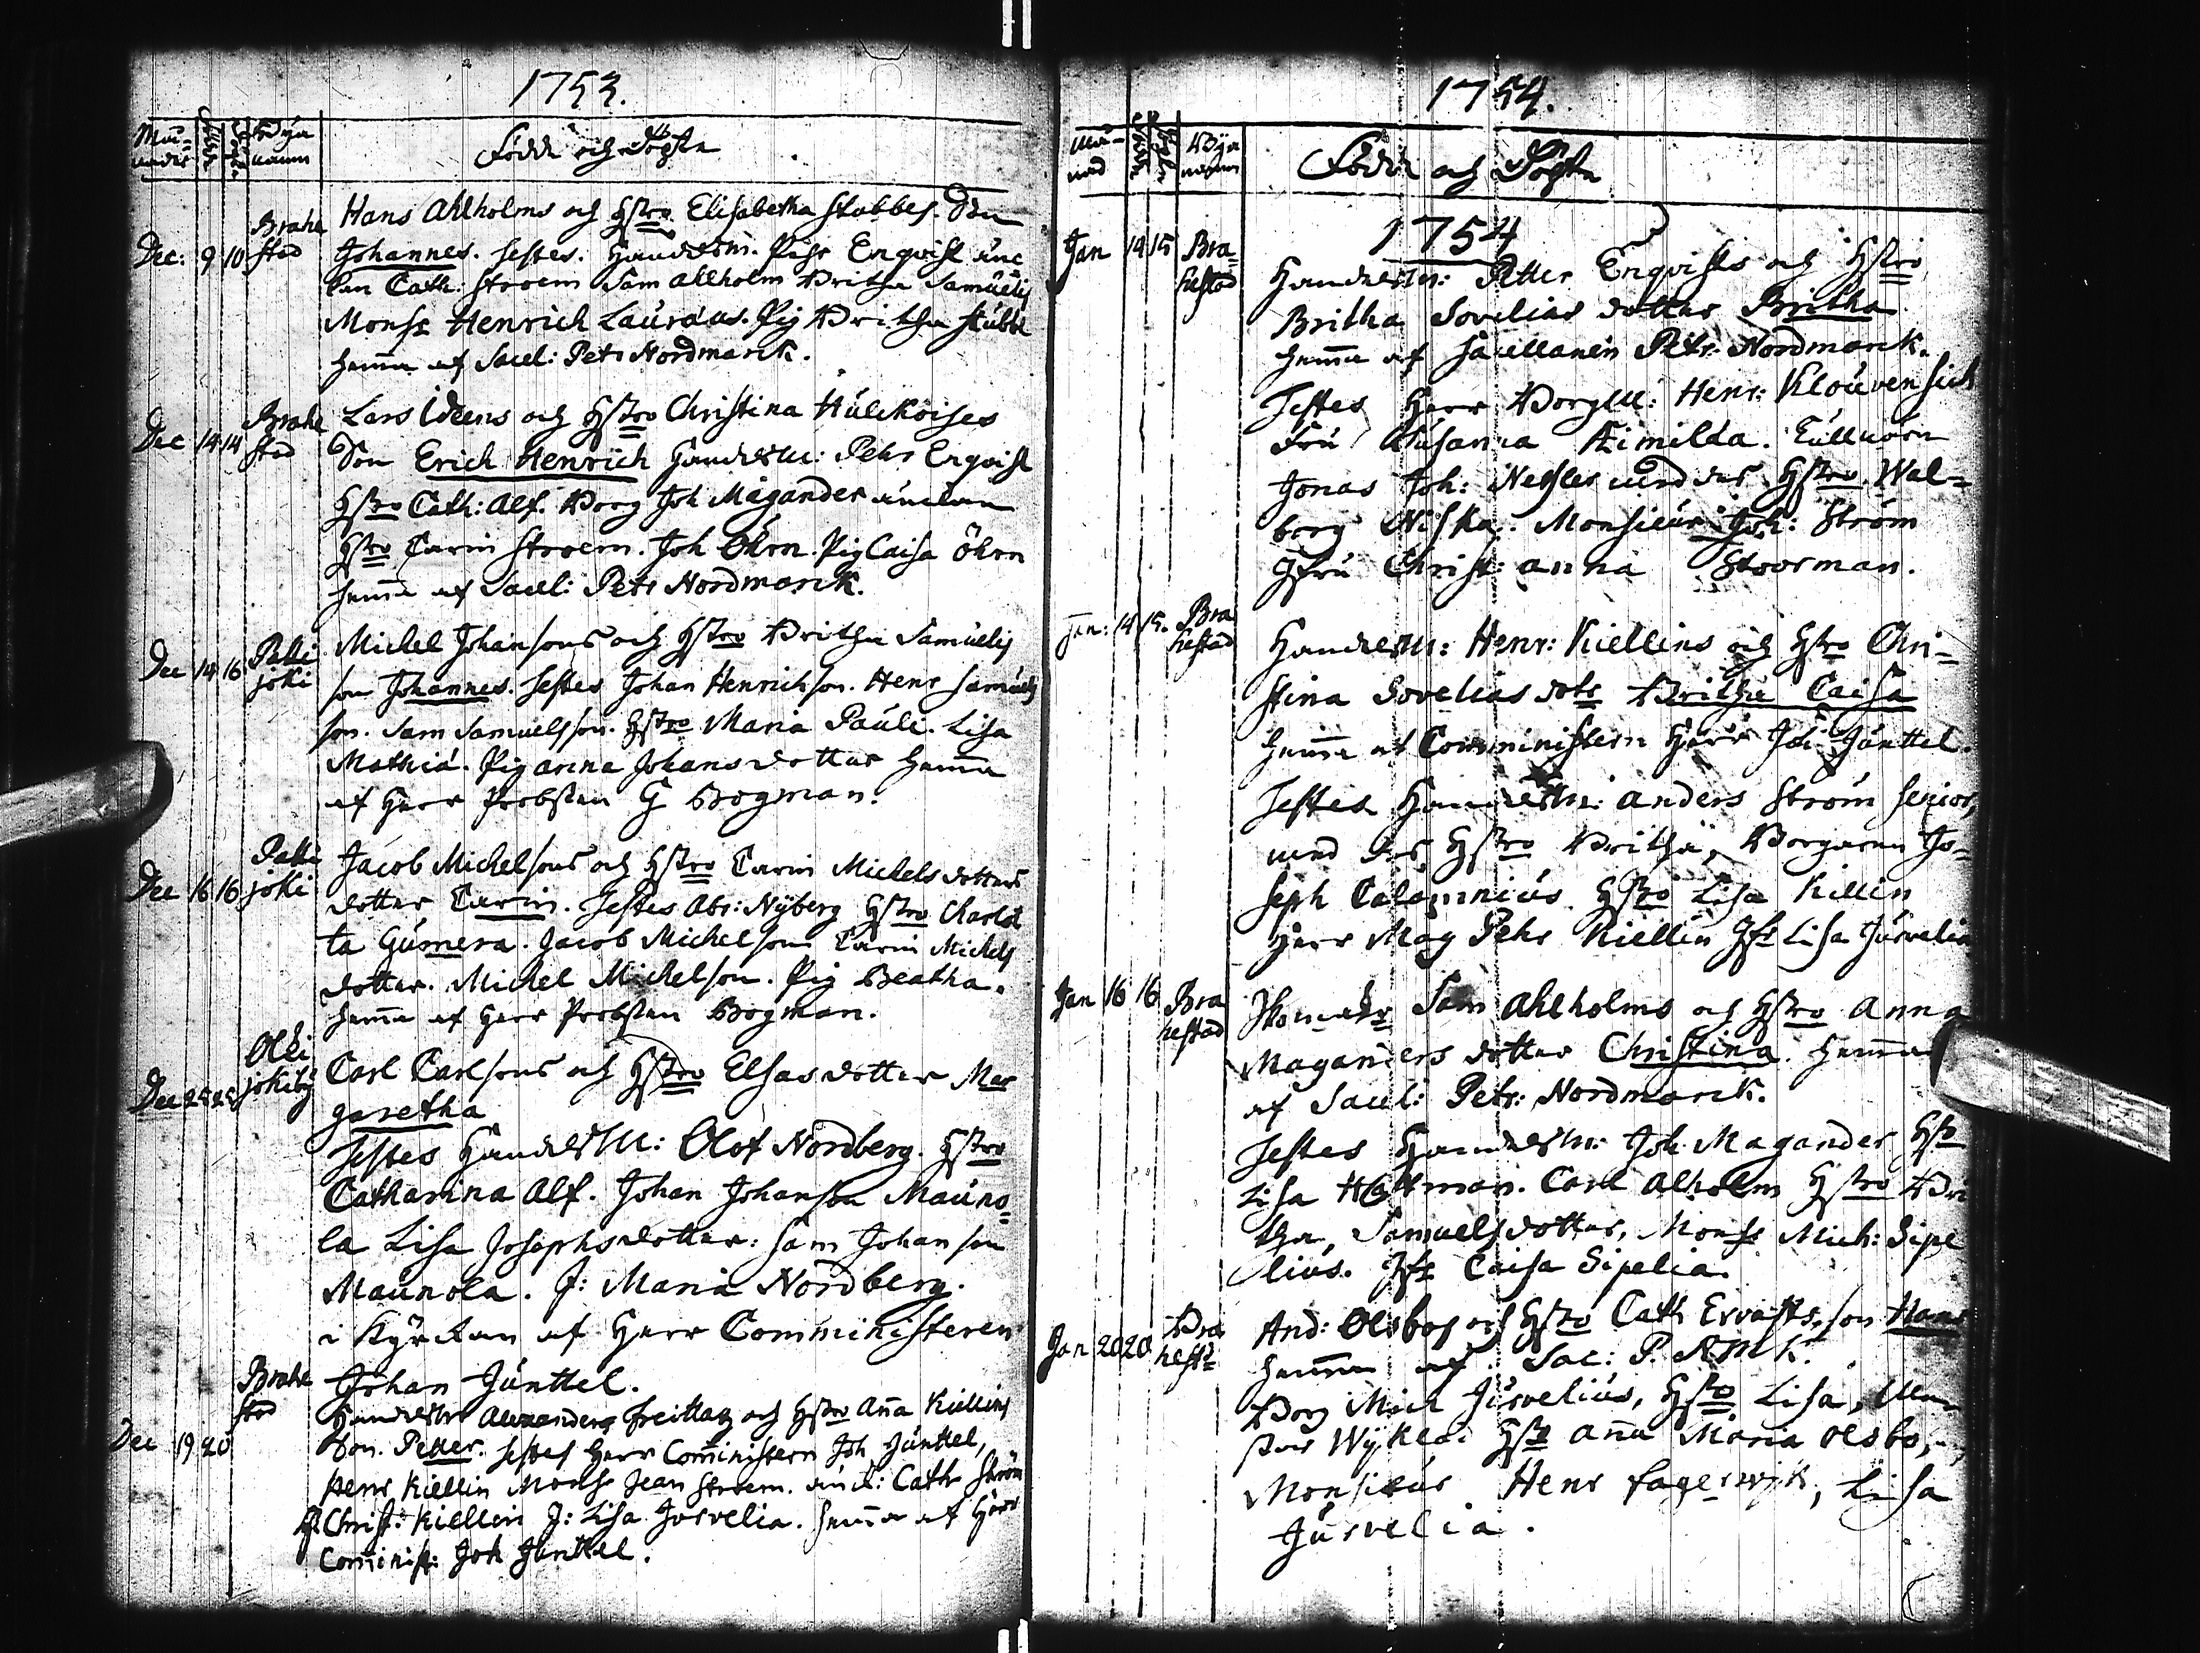 1753.
Må-
nader
Bya
namn
Födde och Döpte
Dec: 9 10 Brahe
stad
Hans Ahlholms och Hstro Elisabetha Stubbes. Son
Johannes. Testes. Handelsm. Pehr Enqvist
Cath: Stroem Sam Ahlholm Britha Samuelis
Monsr Henrich Lauraeus. Pig Britha Stubbe
hemma af Sacel: Petr Nordmarck.
Dec 14 14 Brahe
stad
Lars Ideens och Hstro Christina Hulckoises
Son Erich Henrich Handelsm: Pehr Enqvist
Hstro Cath: Alf. Borg Joh Magander
Hstro Carin Stroem. Joh Öhrn. Pig Caisa Öhrn
hemma af Sacel: Petr Nordmarck.
Dec 14 16 Patti
joki
Michel Johansons och Hstro Britha Samuelis
son Johannes. Testes Johan Henrichson. Henr Samuels
son. Sam Samuelsson. Hstro Maria Pauli. Lisa
Mathiæ. Pig Anna Johansdotter hemma
af Herr Probsten G Bogman.
Dec 16 16 Patti
joki
Jacob Michelsons och Hstro Carin Michelsdotters
dotter Carin. Testes Abr: Nyberg Hstro Charlot
ta Gumera. Jacob Michelson Carin Michels
dotter. Michel Michelson. Pig Beatha.
hemma af Herr Probsten Bogman.
Dec 25 25 Olki
jokiby
Carl Carlsons och Hstro Elsas dotter Mar
garetha
Testes HandelsM: Olof Nordberg. Hstro
Catharina Alf. Johan Johanson Mauno-
la Lisa Josephsdotter: Sam Johanson
Maunola. J: Maria Nordberg.
i Kyrkan af Herr Comministeren
Johan Junttel.
Dec 19 20 Brahe
stad
Handelsm Alexanders Freittag och Hstro Anna Kiellins
Son. Petter. Testes Herr Comministern Joh Junttel,
Henr Kiellin Monsr Jean Stroem. Cath Ström
H. Christ: Kiellin J: Lisa Jusvelia. hemma af Herr
Comminist: Joh Junttel.
1754.
Må-
nad
Bya
namn
Födde och Döpte
1754
Jan 14 15 Bra-
hestad
Handelsm: Petter Enqvists och Hstro
Britha Sovelias dotter Britha
hemma af Sacellanen Petr: Nordmarck.
Testes Herr BorgM: Henr: Klouvensich
Fru Susanna Æimilda. Tullnären
Jonas Joh: Nessler med des Hstro Wal-
borg Niska. Monsieur Joh: Ström
Jfru Christ: Anna Stoorman.
Jan: 14 15. Bra
hestad
HandelsM: Henr: Kiellins och Hstro Chri-
stina Sovelias dotr Britha Caisa
hemma af Comministern Herr Joh Junttel.
Testes Handelsm: Anders Ström senior,
med des Hstro Britha, Borgaren Jo-
seph Calamnius Hstro Lisa Killin
Herr Mag Pehr Kiellin Jfr Lisa Jusvelia
Jan 16 16 Bra
hestad
Sam Ahlholms och Hstro Anna
Maganders dotter Christina. hemma
af Sacel: Petr: Nordmarck.
Testes Handelsm: Joh Magander Hstro
Lisa Hartman. Carl Alholm Hstro Bri
tha, Samuelsdotter, Monsr Mich: Sipe
lius. Jfr Caisa Sipelia.
Jan 20 20 Bra
hest:
And: Olsbos och Hstro Cath Ervasts, son Hans
hemma af Sac: P. NMK.
Borg Mich Jusvelius, Hstro Lisa,
Hstro Anna Maria Olsbo,
Monsieur Henr Fagerwijk, Lisa
Jusvelia.